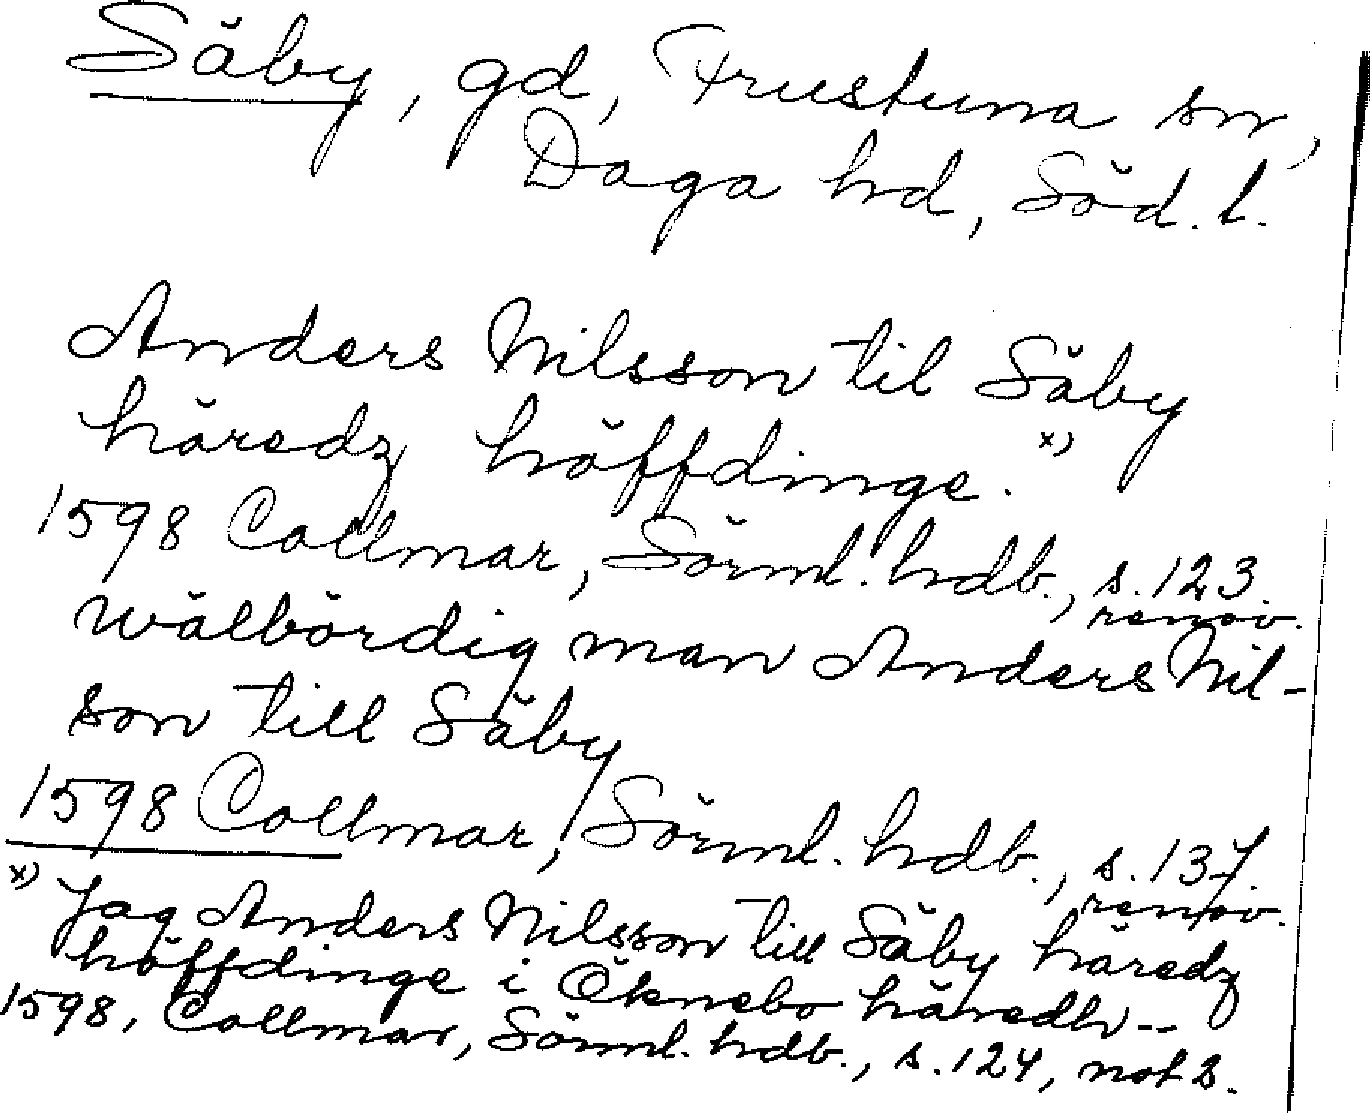 Säby, gd, Frustuna sn,
Daga hd, Söd. l.
Anders Nilsson til Säby
häredz höffdinge. x)
1598 Collmar, Sörml. hdb., s. 123.
renov.
wälbördig man Anders Nil-
son till Säby
1598 Collmar, Sörml. hdb., s. 137.
renov.
x) Jag Anders Nilsson till Säby häredz
höffdinge i Öknebo häredh--
1598, Collmar, Sörml. hdb., s. 124, not 2.